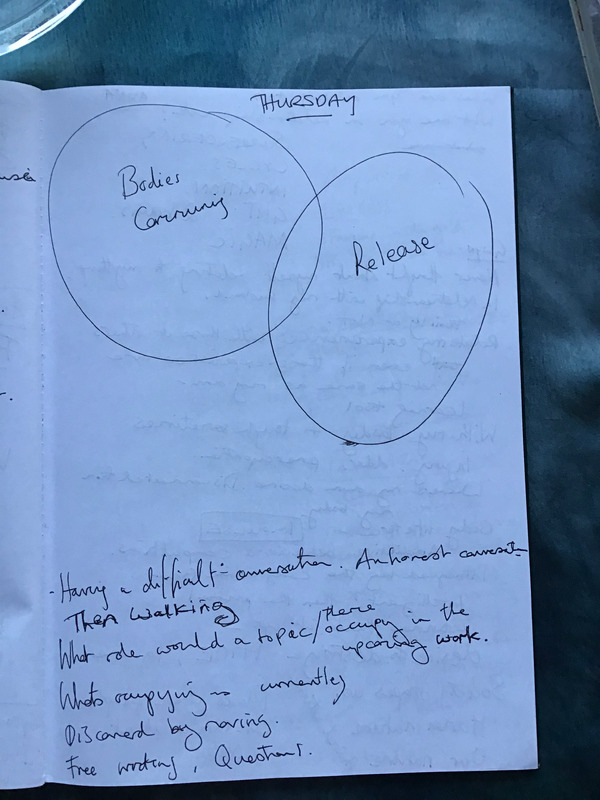 THURSDAY
Bodies
Communing
Release
- Having a difficult conversation. An honest conversation
Then walking
What role would a topic/theme occupy in the
upcoming work.
Whats occupying us currently
Discared by moving.
Free writing, Questions.